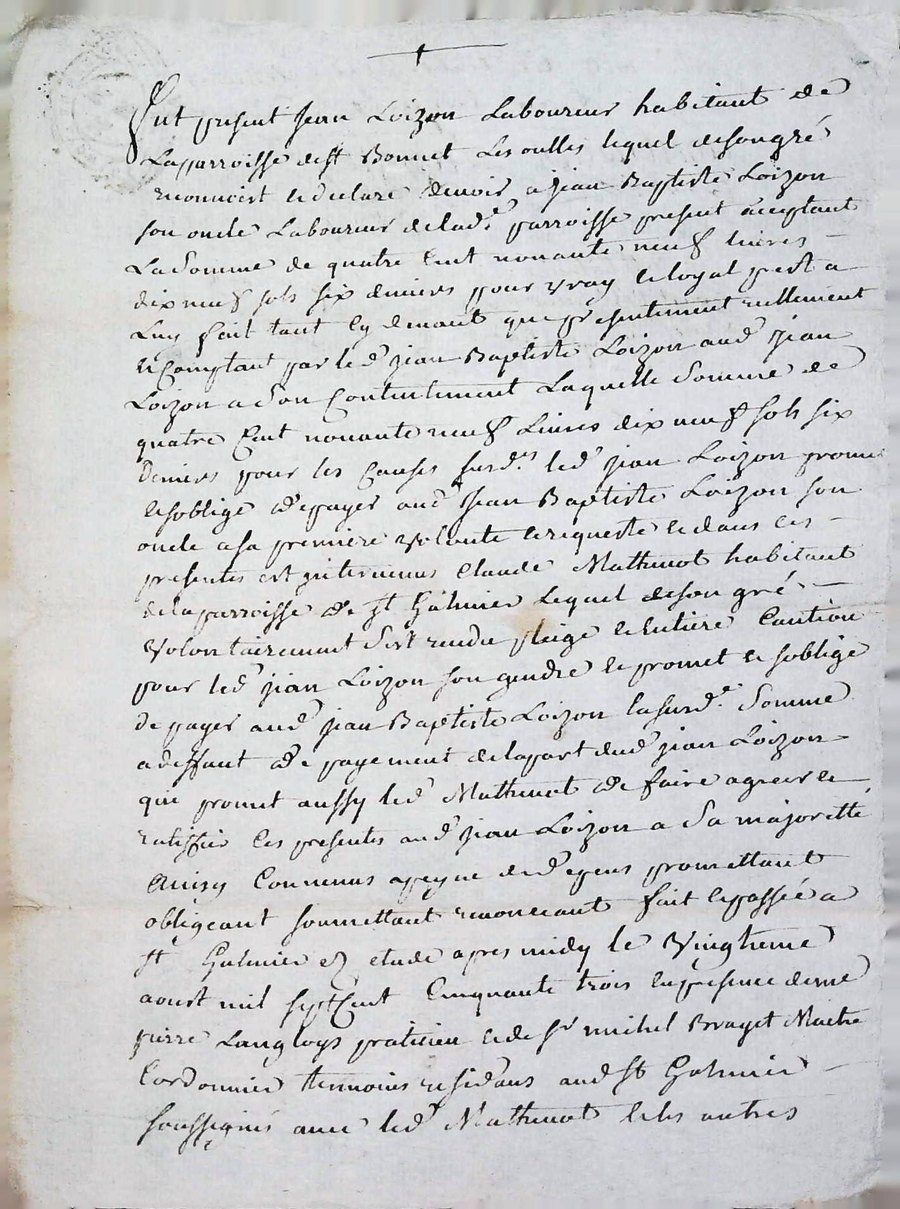 Fut present Jean Loizon Laboureur habitant de
Laparroisse de st Bonnet Les oulles lequel desongré
reconnoist et declare devoir a Jean Baptiste Loizon
son oncle Laboureur delade parroisse present acceptant
La Somme de quatre Cent nonante neuf livres –
dix neuf sols six deniers pour vray et loyal prest a
Luy fait tant cy devant que presentement reellement
et Comptant par led Jean Baptiste Loizon aud Jean
Loizon a Son Contentement Laquelle Somme de
quatre Cent nonante neuf Livres dix neuf sols six
Deniers pour les Causes susd.es led Jean Loizon promet
et soblige de payer aud Jean Baptiste Loizon son
oncle a sa premiere volonte et requeste et dans ces –
presentes est intervenus Claude Mathenot habitant
de la parroisse de st Galmier Lequel de son gré –
volontairement s'est rendu pleige et entiere Caution
pour led Jean Loizon son gendre et promet et soblige
de payer aud Jean Baptiste Loizon la surd.e Somme
a deffaut de payement de la part dud Jean Loizon
qui promet aussy led Mathenot de faire agreer et
ratiffier ces presentes aud Jean Loizon a Sa majoritté
Ainsy Convenus a peyne de d epens promettant
obligeant soumettant renonceant fait et passé a
st Galmier en etude apres midy le vingtieme
aoust mil sept Cent Cinquante trois en presence de me
pierre Langloys praticien et de sr michel Brayet Maitre
Cordonnier temoins residans aud st Galmier –
soussignés avec led Mathenot et les autres